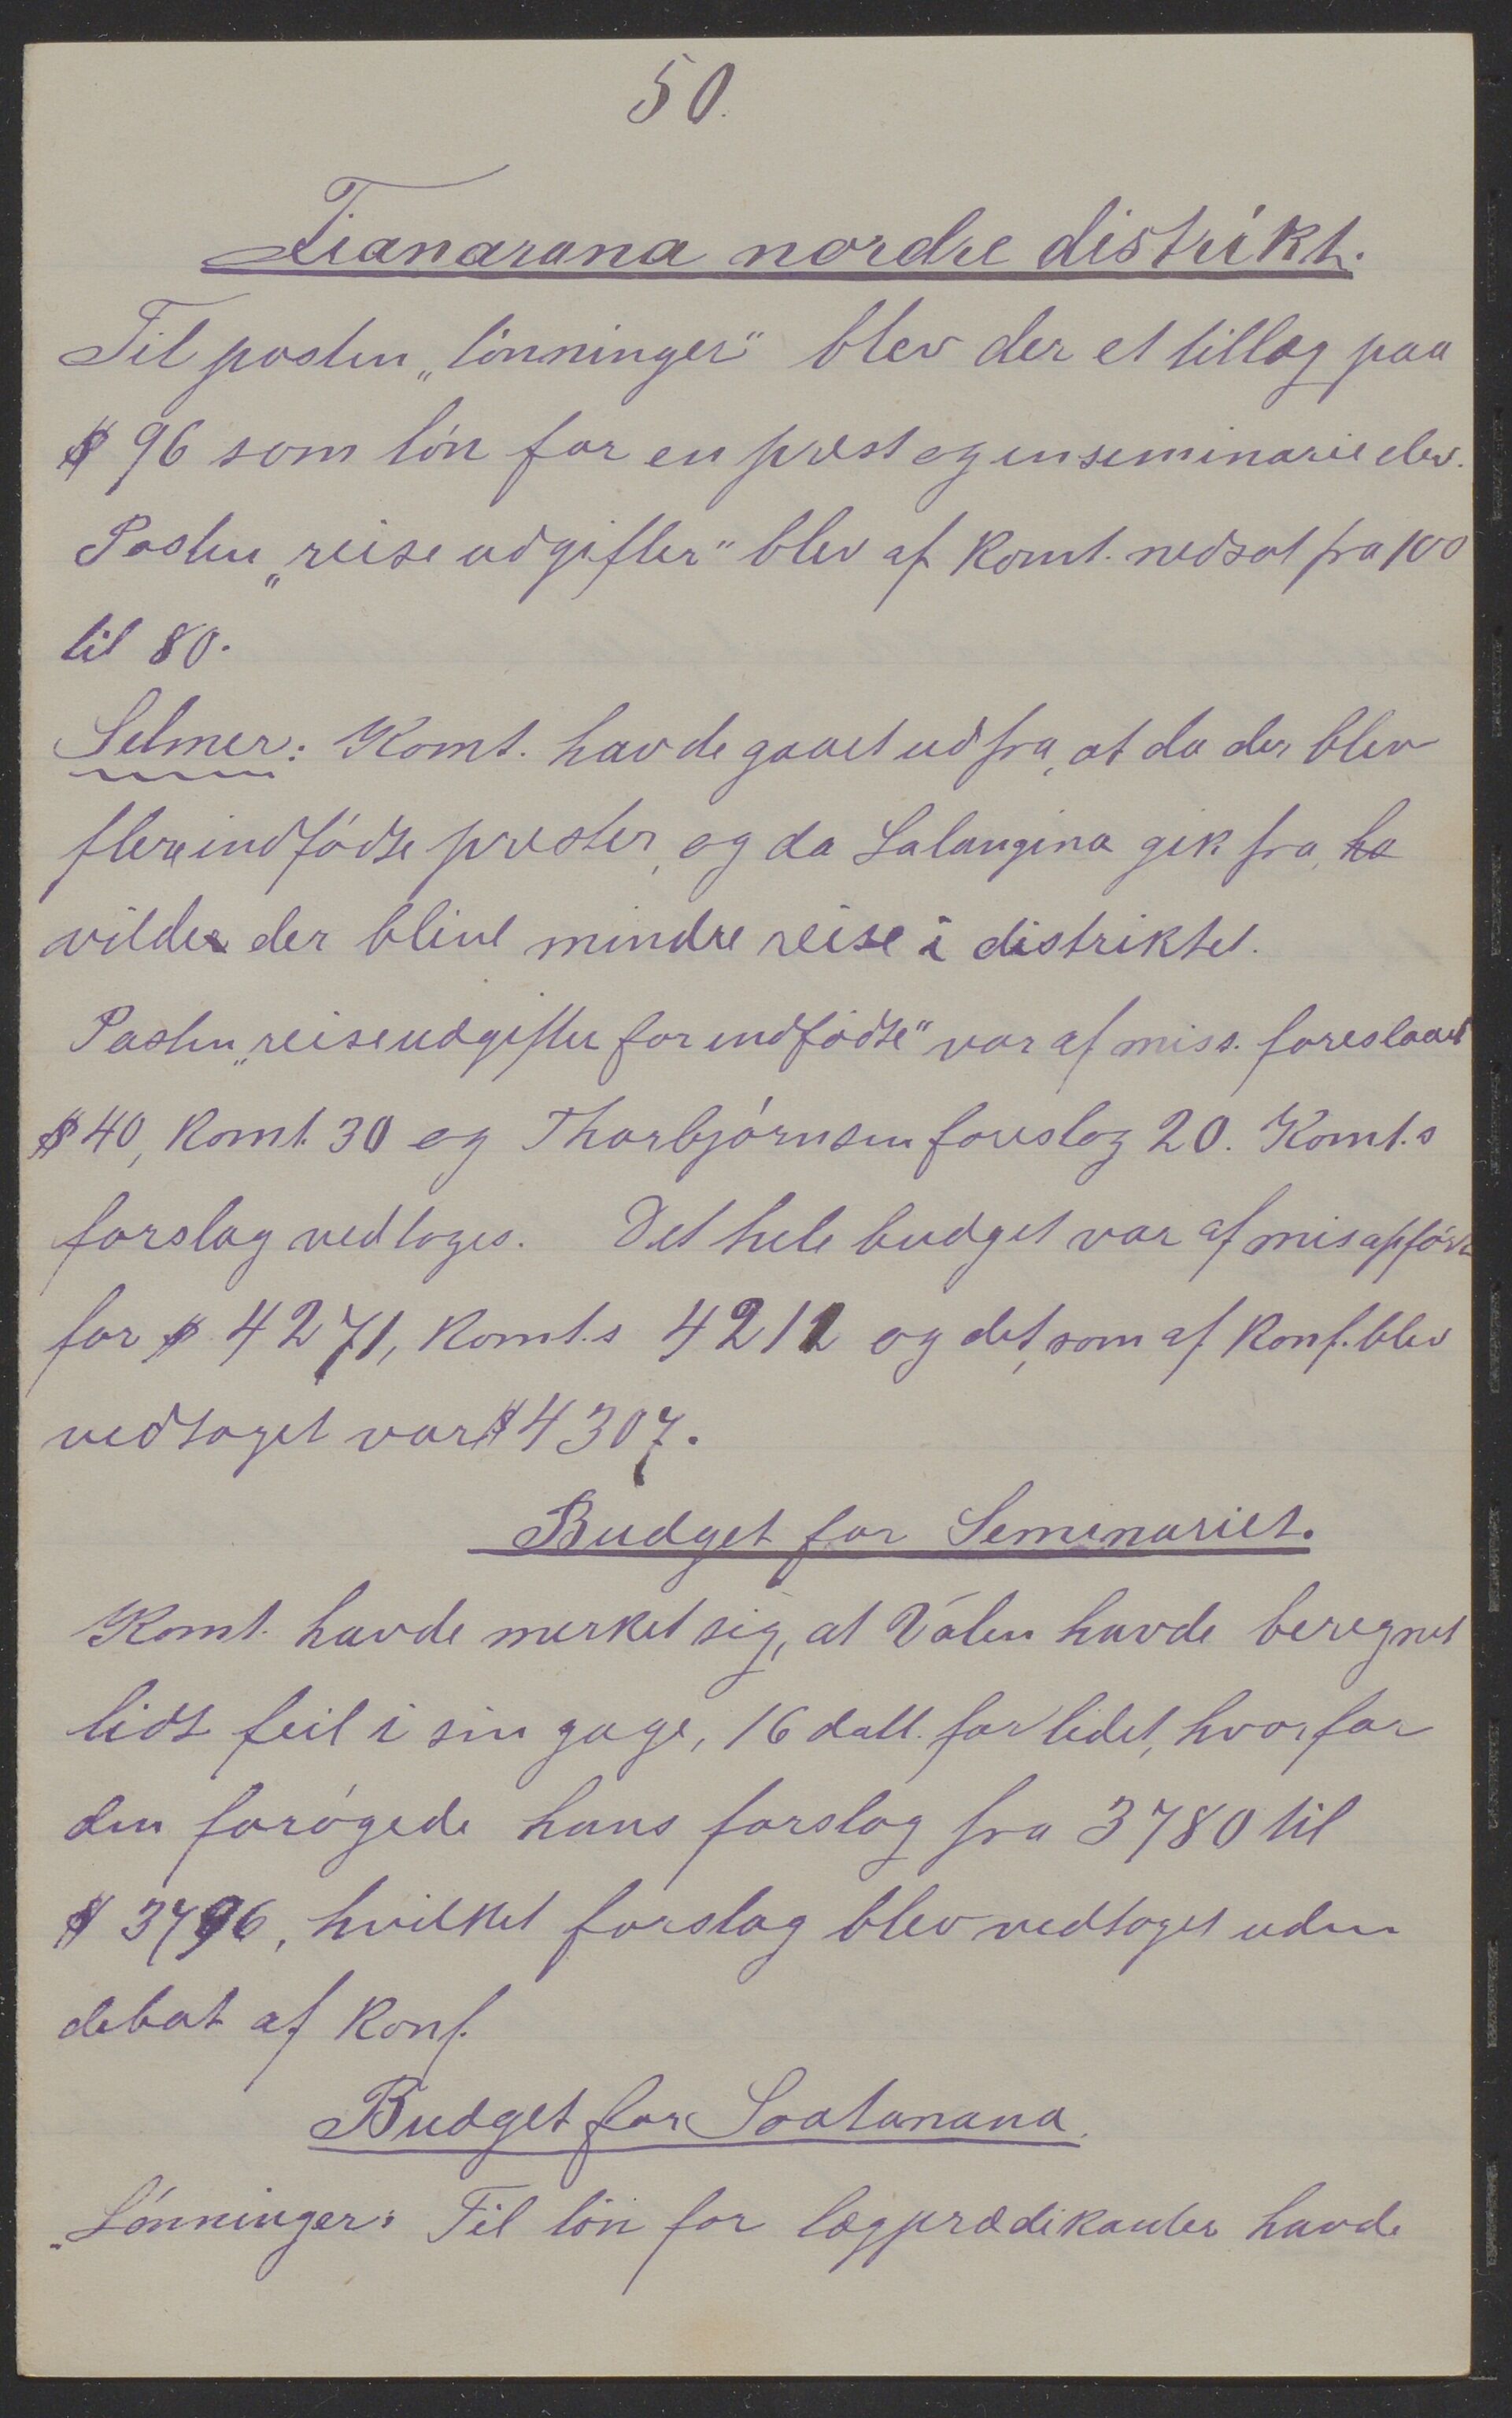 50.
Fianarana nordre distrikt.
Til posten „lönninger" blev der et tillæg paa
$ 96 som lön for en prest og en seminarie elev.
Posten „reise udgifter" blev af Komt. nedsat fra 100
til 80.
Selmer: Komt. havde gaaet ud fra, at da der blev
flere indfödte prester, og da Lalangina gik fra,
vilde der blive mindre reise i distriktet.
Posten „reiseudgifter for indfödte" var af miss. foreslaaet
$ 40, Komt. 30 og Thorbjörnsen foreslog 20. Komt.s
forslag vedtoges. Det hele budget var af mis opført
for $ 4271, Komt.s 4212 og det, som af Konf. blev
vedtaget var $ 4307.
Budget for Seminariet.
Komt. havde merket sig, at Valen havde beregnet
lidt feil i sin gage, 16 doll. for lidet, hvorfor
den forögede hans forslag fra 3780 til
$ 3796, hvilket forslag blev vedtaget uden
debat af Konf.
Budget for Soatanana.
„Lönninger: Til lön for lægprædikanter havde